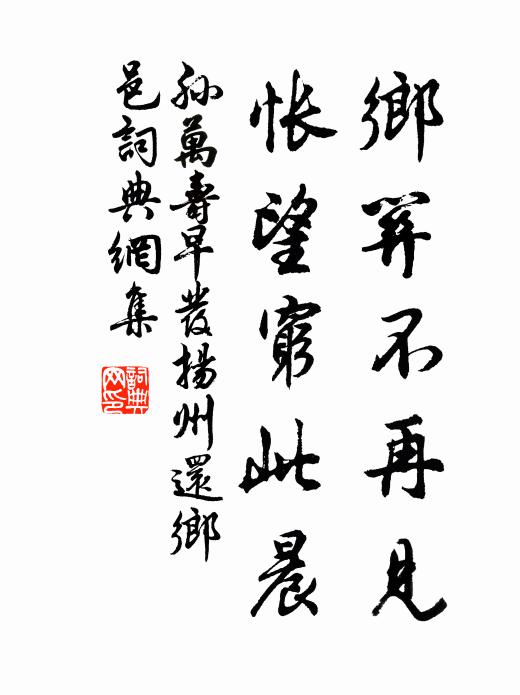 鄉關不再見
悵望窮此晨
孫萬壽早發揚州還鄉
邑詞典網集
詞典
网印